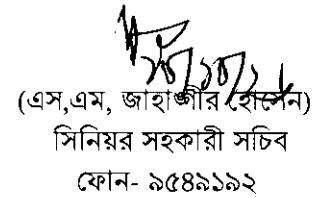 (এস,এম, জাহাঙ্গীর হোসেন)
সিনিয়র সহকারী সচিব
ফোন- ৯৫৪৯১৯২